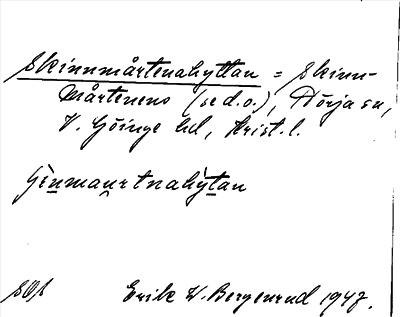 Skinnmårtenahyttan = Skinn-
Mårtenens (se d.o.), Dörja sn,
V. Göinge hd, Krist. l.
SOt
Erik W. Bergenrud 1947.